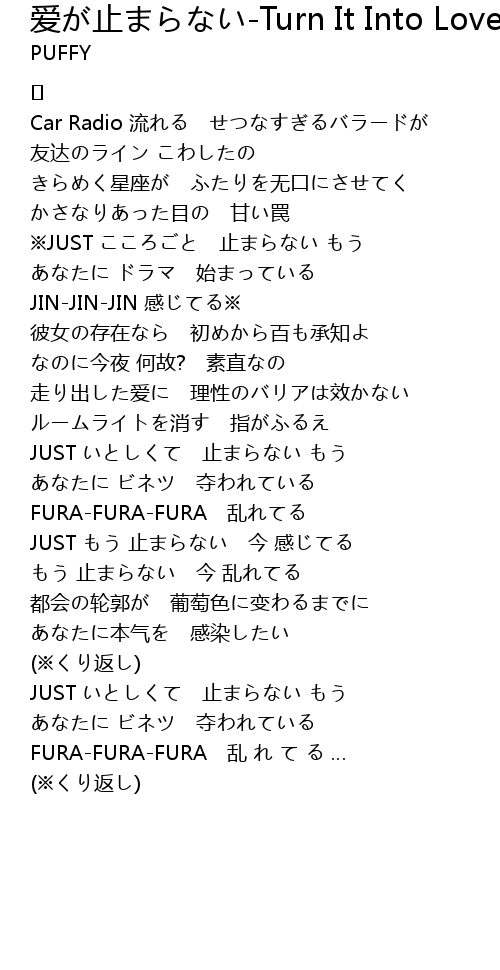 爱が止まらない-Turn It Into Love
PUFFY
[]
Car Radio 流れる　せつなすぎるバラードが
友达のライン こわしたの
きらめく星座が　ふたりを无口にさせてく
かさなりあった目の　甘い罠
※JUST こころごと　止まらない もう
あなたに ドラマ　始まっている
JIN-JIN-JIN 感じてる※
彼女の存在なら　初めから百も承知よ
なのに今夜 何故?　素直なの
走り出した爱に　理性のバリアは效かない
ルームライトを消す　指がふるえ
JUST いとしくて　止まらない もう
あなたに ビネツ　夺われている
FURA-FURA-FURA　乱れてる
JUST もう 止まらない　今 感じてる
もう 止まらない　今 乱れてる
都会の轮郭が　葡萄色に变わるまでに
あなたに本气を　感染したい
(※くり返し)
JUST いとしくて　止まらない もう
あなたに ビネツ　夺われている
FURA-FURA-FURA　乱 れ て る ...
(※くり返し)